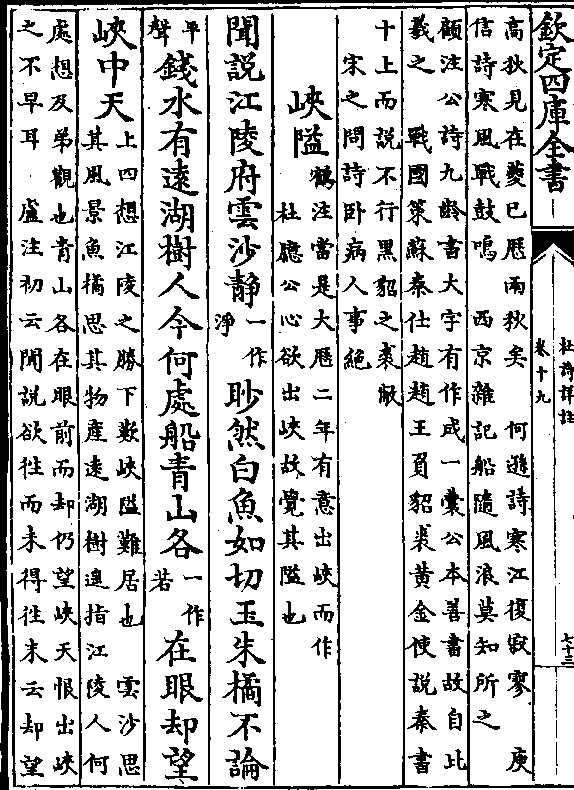 欽定四庫全書
杜詩詳註
卷十九
七十三
高狄見在夔已厯兩秋矣 何遜詩寒江復寂寥 庾
信詩寒風戰鼓鳴 西京雜記船隨風浪莫知所之
顧注公詩九齡書大字有作成一囊公本善書故自比
羲之 戰國策蘇秦仕趙趙王資貂裘黃金使說秦書
十上而說不行黑貂之裘敝
宋之問詩卧病人事絕
峽隘 鶴注當是大厯二年有意出峽而作
杜臆公心欲出峽故覺其隘也
聞說江陵府雲沙靜一作淨眇然白魚如切玉朱橘不論
平聲錢水有遠湖樹人今何處船青山各一作若在眼却望
峽中天 上四想江陵之勝下歎峽隘難居也 雲沙思
其風景魚橘思其物產遠湖樹遠指江陵人何
處想及弟觀也青山各在眼前而却仍望峽天恨出峽
之不早耳 盧注初云聞說欲徃而未得徃末云却望